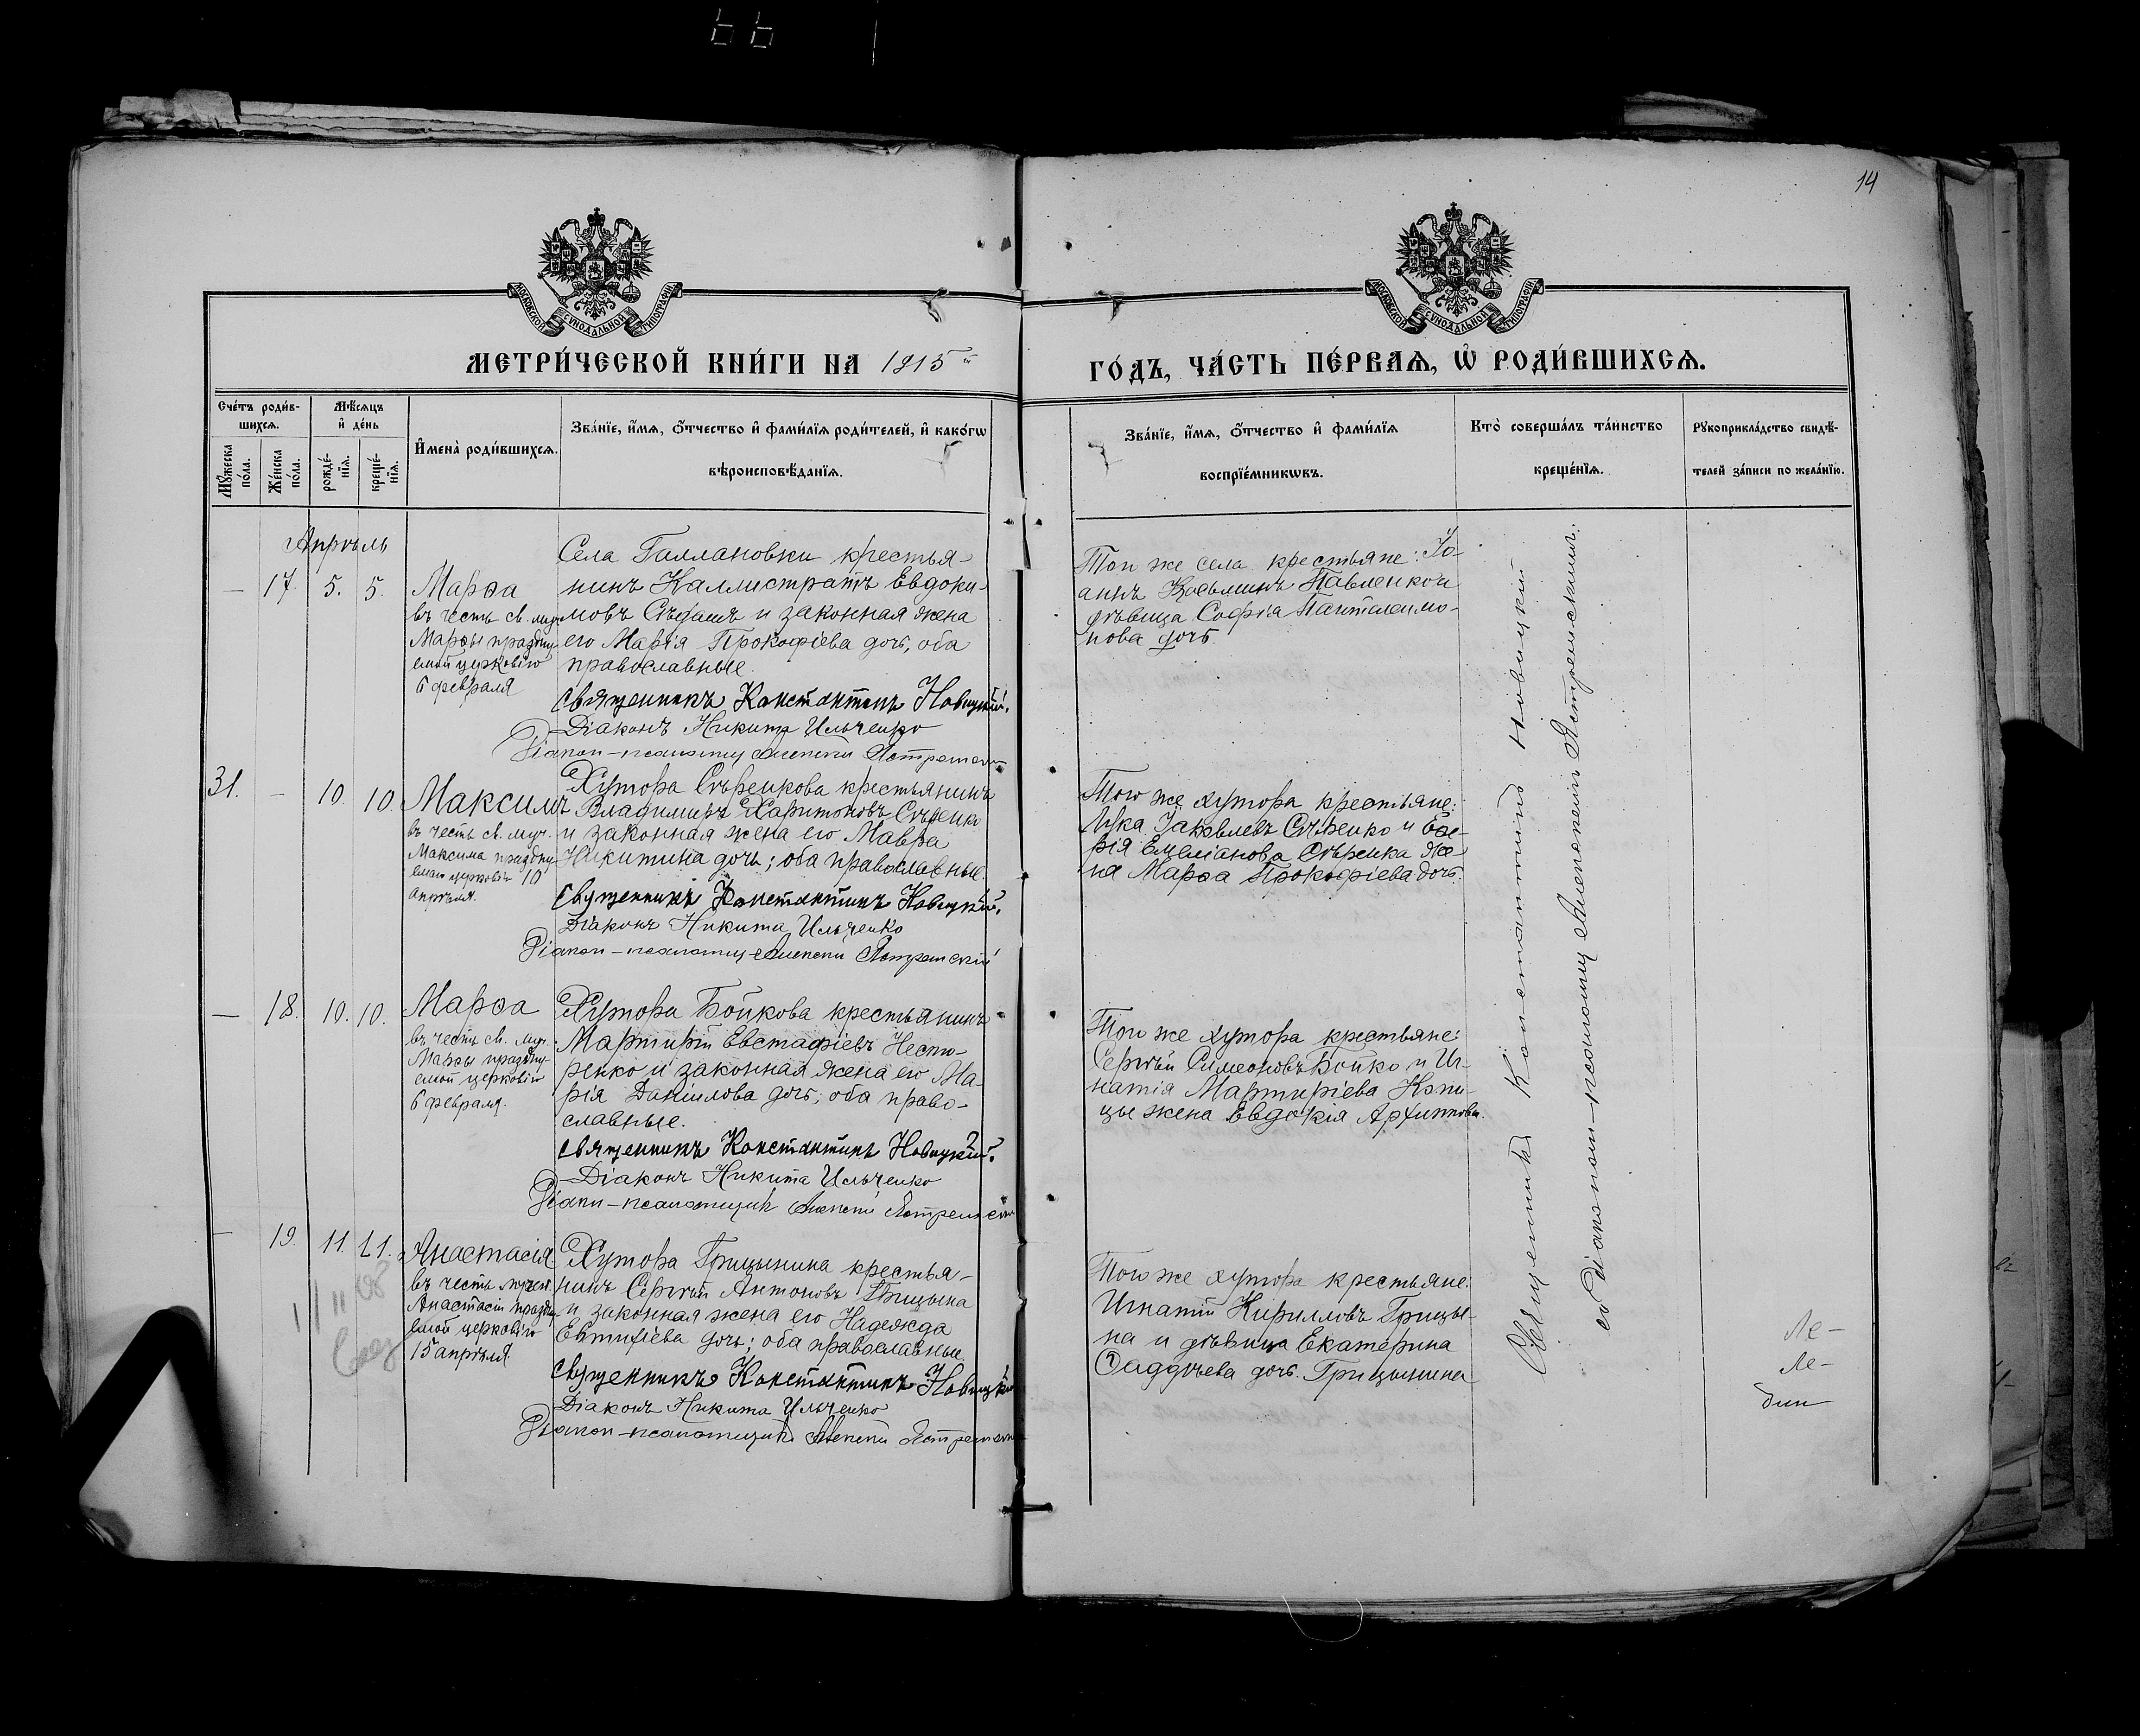 14
МОСКОВСКОЙ СУНОДАЛЬНОЙ ТИПОГРАФІИ
МОСКОВСКОЙ СУНОДАЛЬНОЙ ТИПОГРАФІИ
МЕТРИ́ЧЕСКОЙ КНИ́ГИ НА 1915й
ГО́ДЪ, ЧА́СТЬ ПЕ́РВАѦ, Ѽ РОДИ́ВШИХСѦ.
Сче́тъ роди́в-
шихсѧ.
Мꙋжеска по́ла.
Же́нска по́ла.
Мѣ́сѧцъ
и҆ де́нь
рожде́-
нїѧ.
креще́-
нїѧ.
И҆мена̀ роди́вшихсѧ.
Зва́нїе, и҆́мѧ, ѻ҆́тчество и҆ фами́лїѧ роди́телей, и҆ како́гѡ
вѣроисповѣ́данїѧ.
Зва́нїе, и҆́мѧ, ѻ҆́тчество и҆ фами́лїѧ
воспрїе́мникѡвъ.
Кто̀ соверша́лъ та́инство
креще́нїѧ.
Рꙋкоприкла́дство свидѣ́-
телей за́писи по жела́нїю.
Апрѣль
— 17. 5. 5.
Марѳа
въ честь св. муч.
Марѳы праздну-
емой церковію
6 февраля
Села Галлановки крестья-
нинъ Каллистратъ Евдоки-
мовъ и законная жена
его Марія Прокофіева дочь, оба
православные.
Священникъ Константинъ Новицкій.
Діаконъ Никита Ильченко
Діакон-псаломщ Алексѣй Ястремскій
Той же села крестьяне: Іо-
аннъ Козьминъ Павленко и
дѣвица Софія Пантелеимо-
нова дочь.
31. — 10. 10.
Максимъ
въ честь св. муч.
Максима праздну-
емаго церковію 10
апрѣля.
Хутора Сѣренкова крестьянинъ
Владимиръ Харитоновъ Сѣренко
и законная жена его Мавра
Никитина дочь; оба православные.
Священникъ Константинъ Новицкій.
Діаконъ Никита Ильченко
Діакон-псаломщ Алексѣй Ястремскій
Того же хутора крестьяне:
Лука Іаковлевъ Сѣренко и
Емеліанова Сѣренка же-
на Марѳа Прокофіева дочь.
— 18. 10. 10.
Марѳа
въ честь св. муч.
Марѳы праздну-
емой церковію
6 февраля.
Хутора Бойкова крестьянинъ
Мартирій Евстафіевъ Несте-
ренко и законная жена его Ма-
рія Даніилова дочь; оба право-
славные.
Священникъ Константинъ Новицкій.
Діаконъ Никита Ильченко
Діакон-псаломщикъ Алексѣй Ястремскій
Того же хутора крестьяне:
Сергѣй Симеоновъ Бойко и Иг-
натія Мартиріева
жена Евдокія Архиппова.
— 19. 11. 11.
Анастасія
въ честь мучен.
Анастасіи праздну-
емой церковію
15 апрѣля
Хутора Грицынина крестья-
нинъ Сергѣй Антоновъ Грицына
и законная жена его Надежда
Евтихіева дочь; оба православные.
Священникъ Константинъ Новицкій
Діаконъ Никита Ильченко
Діакон-псаломщикъ Алексѣй Ястремскій
Того же хутора крестьяне:
Игнатій Кирилловъ Грицы-
на и дѣвица Екатерина
Ѳаддѣева дочь Грицынина
Священникъ Константинъ Новицкій
со Діакономъ-псаломщ Алексѣемъ Ястремскимъ.